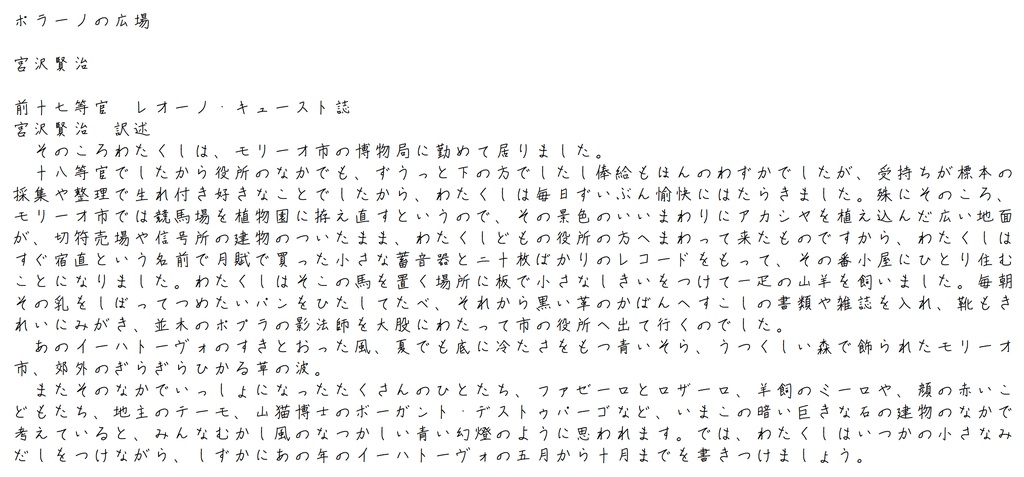 ポラーノの広場
宮沢賢治
前十七等官　レオーノ・キュースト誌
宮沢賢治　訳述
　そのころわたくしは、モリーオ市の博物局に勤めて居りました。
　十八等官でしたから役所のなかでも、ずうっと下の方でしたし俸給もほんのわずかでしたが、受持ちが標本の
採集や整理で生れ付き好きなことでしたから、わたくしは毎日ずいぶん愉快にはたらきました。殊にそのころ、
モリーオ市では競馬場を植物園に拵え直すというので、その景色のいいまわりにアカシヤを植え込んだ広い地面
が、切符売場や信号所の建物のついたまま、わたくしどもの役所の方へまわって来たものですから、わたくしは
すぐ宿直という名前で月賦で買った小さな蓄音器と二十枚ばかりのレコードをもって、その番小屋にひとり住む
ことになりました。わたくしはそこの馬を置く場所に板で小さなしきいをつけて一疋の山羊を飼いました。毎朝
その乳をしぼってつめたいパンをひたしてたべ、それから黒い革のかばんへすこしの書類や雑誌を入れ、靴もき
れいにみがき、並木のポプラの影法師を大股にわたって市の役所へ出て行くのでした。
　あのイーハトーヴォのすきとおった風、夏でも底に冷たさをもつ青いそら、うつくしい森で飾られたモリーオ
市、郊外のぎらぎらひかる草の波。
　またそのなかでいっしょになったたくさんのひとたち、ファゼーロとロザーロ、羊飼のミーロや、顔の赤いこ
どもたち、地主のテーモ、山猫博士のボーガント・デストゥパーゴなど、いまこの暗い巨きな石の建物のなかで
考えていると、みんなむかし風のなつかしい青い幻燈のように思われます。では、わたくしはいつかの小さなみ
だしをつけながら、しずかにあの年のイーハトーヴォの五月から十月までを書きつけましょう。